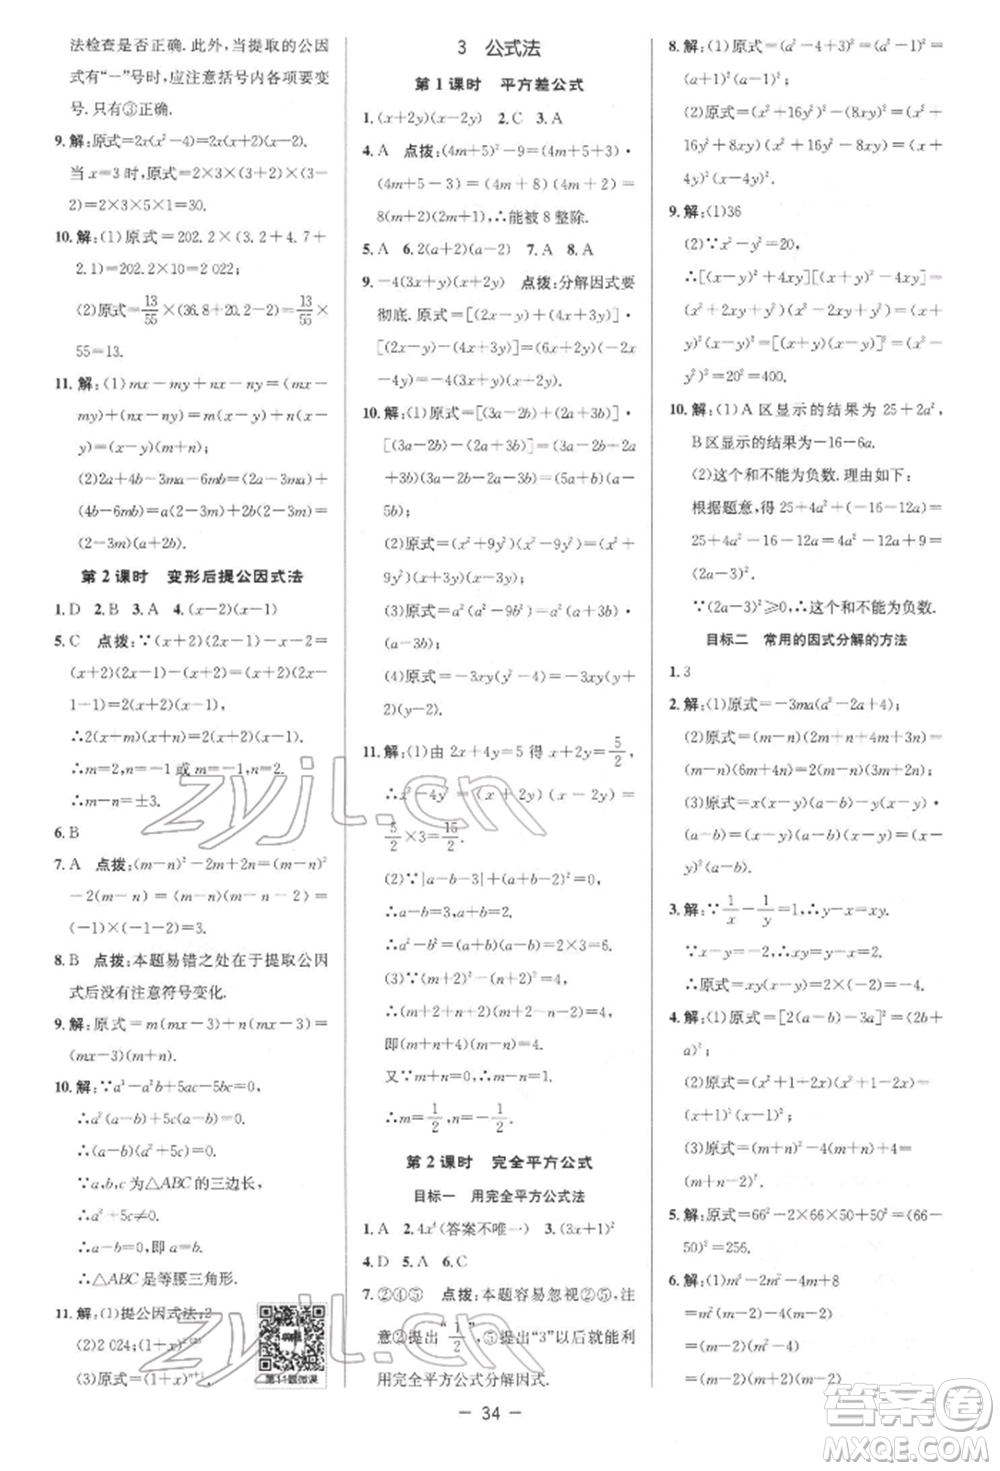 法检查是否正确. 此外, 当提取的公因
式有“一”号时, 应注意括号内各项要变
号. 只有③正确.
9. 解: 原式=2x(x²-4)=2x(x+2)(x-2).
当 x=3 时, 原式=2×3×(3+2)×(3-
2)=2×3×5×1=30.
10. 解: (1)原式=202.2×(3.2+4.7+
2.1)=202.2×10=2 022;
(2)原式=13/55×(36.8+20.2-2)=13/55×
55=13.
11. 解: (1)(mx-my)+(nx-ny)=(mx-
my)+(nx-ny)=m(x-y)+n(x-
y)=(m+n)(x-y);
(2)2a+4b-3ma-6mb=(2a-3ma)+
(4b-6mb)=a(2-3m)+2b(2-3m)=
(2-3m)(a+2b).
第 2 课时 变形后提公因式法
1. D 2. B 3. A 4. (x-2)(x-1)
5. C 点拨: ∵(x+2)(2x-1)-x-2=
(x+2)(2x-1)-(x+2)=(x+2)(2x-
1-1)=2(x+2)(x-1),
∴2(x+m)(x+n)=2(x+2)(x-1).
∴m=2, n=-1 或 m=-1, n=2.
∴m-n=±3.
6. B
7. A 点拨: (m-n)²-2m+2n=(m-n)²
-2(m-n)=(m-n)(m-n-2)=
(-1)×(-1-2)=3.
8. B 点拨: 本题易错之处在于提取公因
式后没有注意符号变化.
9. 解: 原式=m(mx-3)+n(mx-3)=
(mx-3)(m+n).
10. 解: ∵a³-a²b+5ac-5bc=0,
∴a²(a-b)+5c(a-b)=0.
∴(a-b)(a²+5c)=0.
∵a, b, c 为△ABC 的三边长,
∴a²+5c≠0.
∴a-b=0, 即 a=b.
∴△ABC 是等腰三角形.
11. 解: (1)提公因式法; 2
(2)2 024; (1+x)²⁰²⁵
(3)原式=(1+x)ⁿ⁺¹.
第11题微课
3 公式法
第 1 课时 平方差公式
1. (x+2y)(x-2y) 2. C 3. A
4. A 点拨: (4m+5)²-9=(4m+5+3)·
(4m+5-3)=(4m+8)(4m+2)=
8(m+2)(2m+1), ∴能被 8 整除.
5. A 6. 2(a+2)(a-2) 7. A 8. A
9. -4(3x+y)(x+2y) 点拨: 分解因式要
彻底. 原式=[(2x-y)+(4x+3y)]·
[(2x-y)-(4x+3y)]=(6x+2y)(-2x
-4y)=-4(3x+y)(x+2y).
10. 解: (1)原式=[(3a-2b)+(2a+3b)]·
[(3a-2b)-(2a+3b)]=(3a-2b+2a
+3b)(3a-2b-2a-3b)=(5a+b)(a-
5b);
(2)原式=(x²+9y²)(x²-9y²)=(x²+
9y²)(x+3y)(x-3y);
(3)原式=a²(a²-9b²)=a²(a+3b)·
(a-3b);
(4)原式=-3xy(y²-4)=-3xy(y+2)·
(y-2).
11. 解: (1)由 2x+4y=5 得 x+2y=5/2,
∴x²-4y²=(x+2y)(x-2y)=
5/2×3=15/2.
(2)∵|a-b-3|+(a+b-2)²=0,
∴a-b=3, a+b=2.
∴a²-b²=(a+b)(a-b)=2×3=6.
即(m+n)(m-n)=
又∵m+n=1, ∴m-n=0.
∴m=1/2, n=1/2.
第 2 课时 完全平方公式
目标一 用完全平方公式法
1. A 2. 4x⁴(答案不唯一) 3. (3x+1)²
4. D 5. A 6. C
7. ②④⑤ 点拨: 本题容易忽视②⑤, 注
意②提出“1/2”, ⑤提出“3”以后就能利
用完全平方公式分解因式.
8. 解: (1)原式=(a²-4+3)²=(a²-1)²=
(a+1)²(a-1)²;
(2)原式=(x²+16y²)²-(8xy)²=(x²+
16y²+8xy)(x²+16y²-8xy)=(x+
4y)²(x-4y)².
9. 解: (1)36
(2)∵x²+y²=20,
∴[(x-y)²+4xy][(x+y)²-4xy]=
(x²+y²-2xy+4xy)(x²+y²+2xy-
4xy)=(x²+y²+2xy)(x²+y²-2xy)=
(x+y)²(x-y)²=[(x+y)(x-y)]²=(x²-
y²)²=20²=400.
10. 解: (1)A 区显示的结果为 25+2a²,
B 区显示的结果为-16-6a.
(2)这个和不能为负数. 理由如下:
根据题意, 得 25+4a²+(-16-12a)=
25+4a²-16-12a=4a²-12a+9=
(2a-3)².
∵(2a-3)²≥0, ∴这个和不能为负数.
目标二 常用的因式分解的方法
1. 3
2. 解: (1)原式=-3ma(a²-2a+4);
(2)原式=(m-n)(2m+4n+4m+3n)=
(m-n)(6m+7n);
(3)原式=a(x-y)-b(x-y)=(x-y)·
(a-b).
3. 解: ∵1/x-1/y=1, ∴y-x=xy.
∵x-y=-2, ∴xy=2.
∴原式=xy(x-y)=2×(-2)=-4.
4. 解: (1)原式=[2(b-a)+3a]²=(2b+
a)²;
(2)原式=(x²+1+2x)(x²+1-2x)=
(x+1)²(x-1)²;
(3)原式=(m+n)²-4(m+n)+4=
(m+n-2)².
5. 解: 原式=66²-2×66×50+50²=(66-
50)²=256.
6. 解:
— 34 —
zyjl.cn
zyjl.cn
答案圈
MXQE.COM